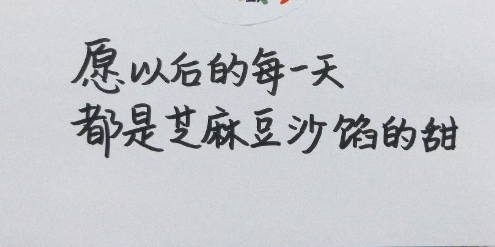 愿以后的每一天
都是芝麻豆沙馅的甜